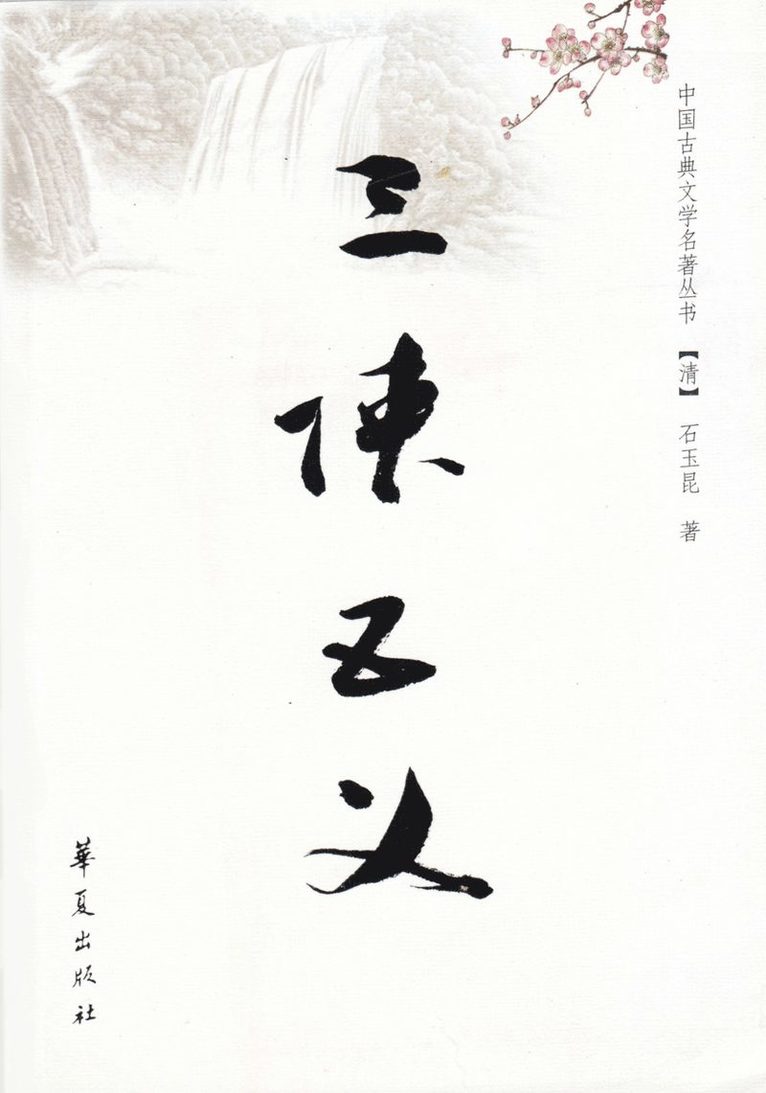 中国古典文学名著丛书 【清】 石玉昆 著
三侠五义
華夏出版社